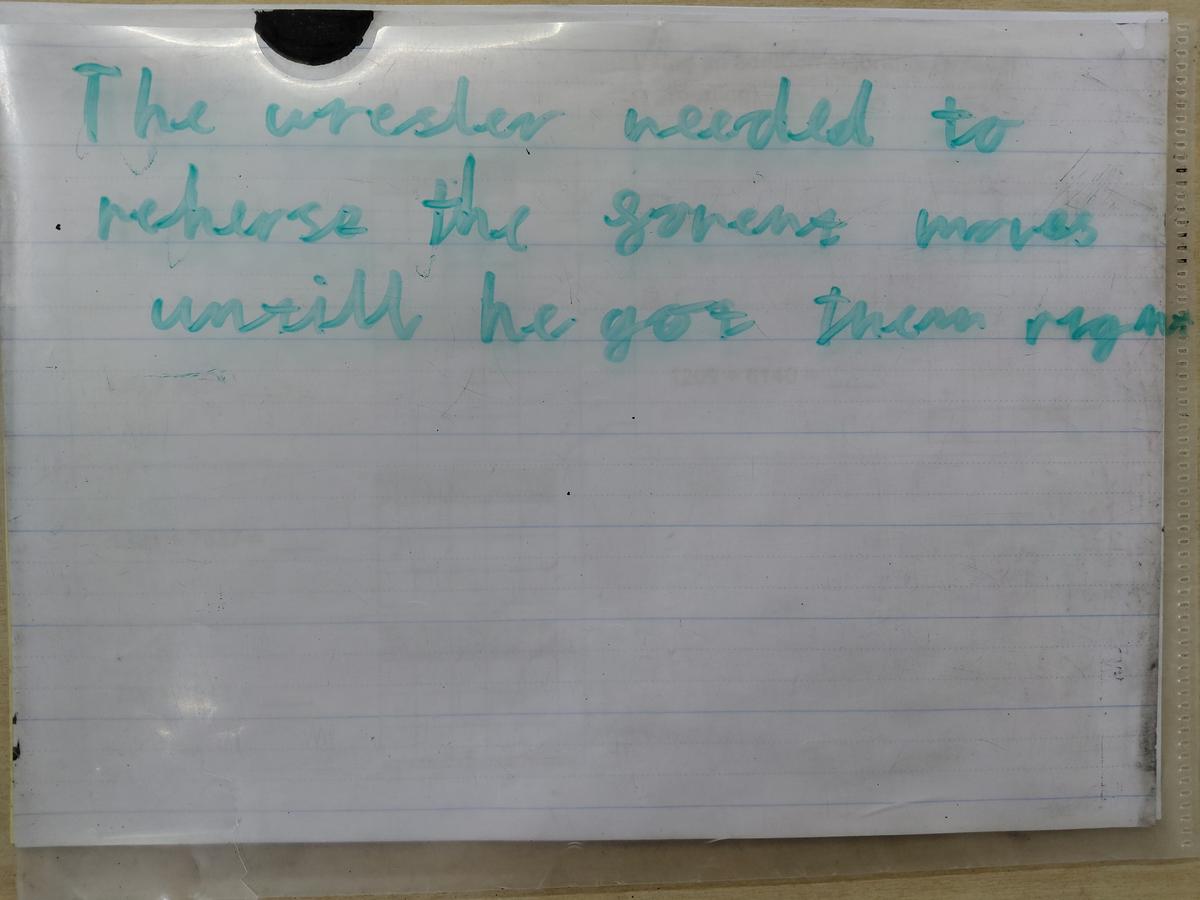 The wresler needed to
reherse the moves
untill he got them